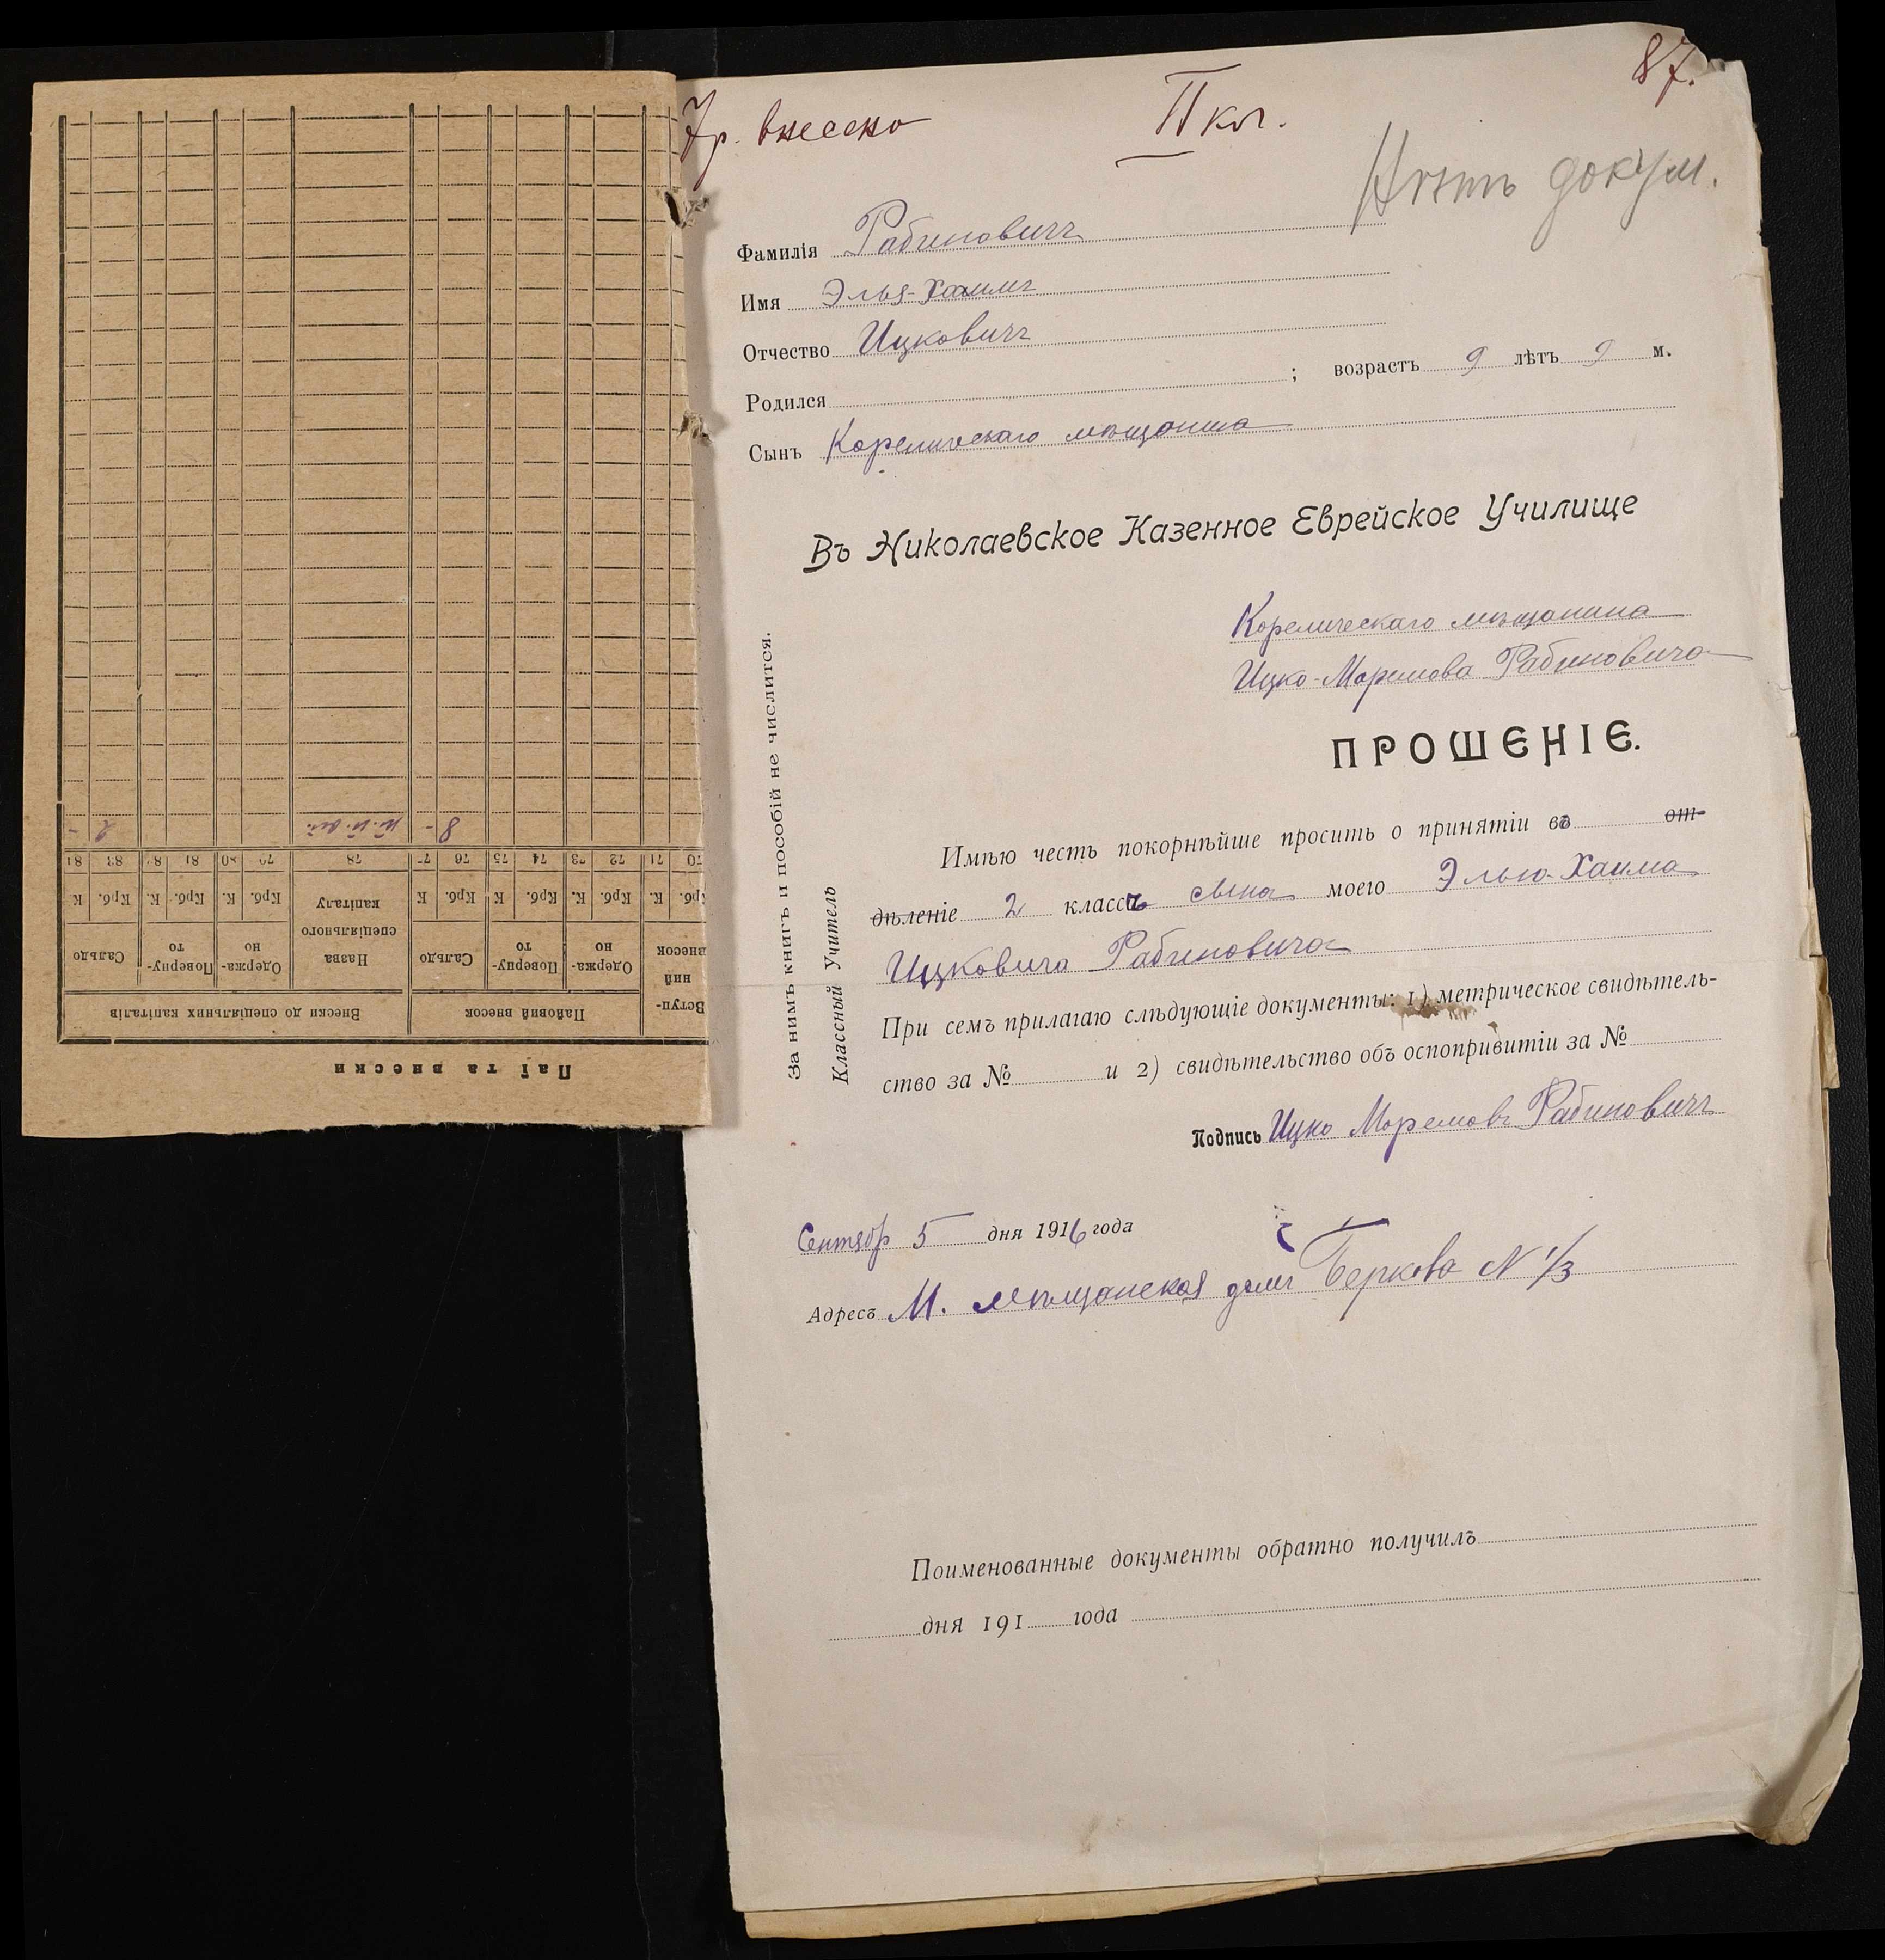 7р. внесено
II кл.
87.
Нѣтъ докум.
Фамилія Рабиновичъ
Имя Элья-Хаимъ
Отчество Ицковичъ
Родился ; возрастъ 9 лѣтъ 9 м.
Сынъ Корелическаго мѣщанина
Въ Николаевское Казенное Еврейское Училище
Корелическаго мѣщанина
Ицко-Моремова Рабиновича
ПРОШЕНІЕ.
Имѣю честь покорнѣйше просить о принятіи въ от-
дѣленіе 2 классъ сына моего Элью-Хаима
Ицковича Рабиновича
При семъ прилагаю слѣдующіе документы: 1) метрическое свидѣтель-
ство за № и 2) свидѣтельство объ оспопривитіи за №
Подпись Ицко Моремовъ Рабиновичъ
Сентябр 5 дня 1916 года
Адресъ М. Мѣщанская домъ Беркова N 1/3
Поименованные документы обратно получилъ
дня 191 года
За нимъ книгъ и пособій не числится.
Классный Учитель
Паї та внески
Вступ- Пайовий внесок Внески до спеціяльних капіталів
ний
внесок Одержа- Поверну- Сальдо Назва Одержа- Поверну- Сальдо
но то спеціяльного но то
капіталу
Крб. К. Крб. К. Крб. К Крб. К Крб. К. Крб. К. Крб. К
70 71 72 73 74 75 76 77 78 79 80 81 82 83 84
8 - 2 -